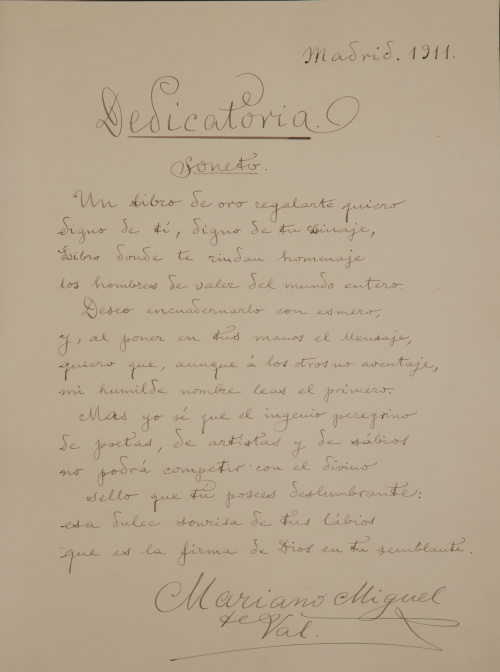 Madrid. 1911.
Dedicatoria.
Soneto.
Un libro de oro regalarte quiero
digno de tí, digno de tu linaje,
Libro donde te rindan homenaje
los hombres de valer del mundo entero.
Deseo encuadernarlo con esmero,
y, al poner en tus manos el Mensaje,
quiero que, aunque á los otros no aventaje,
mi humilde nombre leas el primero.
Mas yo sé que el ingenio peregrino
de poetas, de artistas y de sábios
no podrá competir con el divino
sello que tú posees deslumbrante:
esa dulce sonrisa de tus lábios
que es la firma de Dios en tu semblante.
Mariano Miguel
de Val.